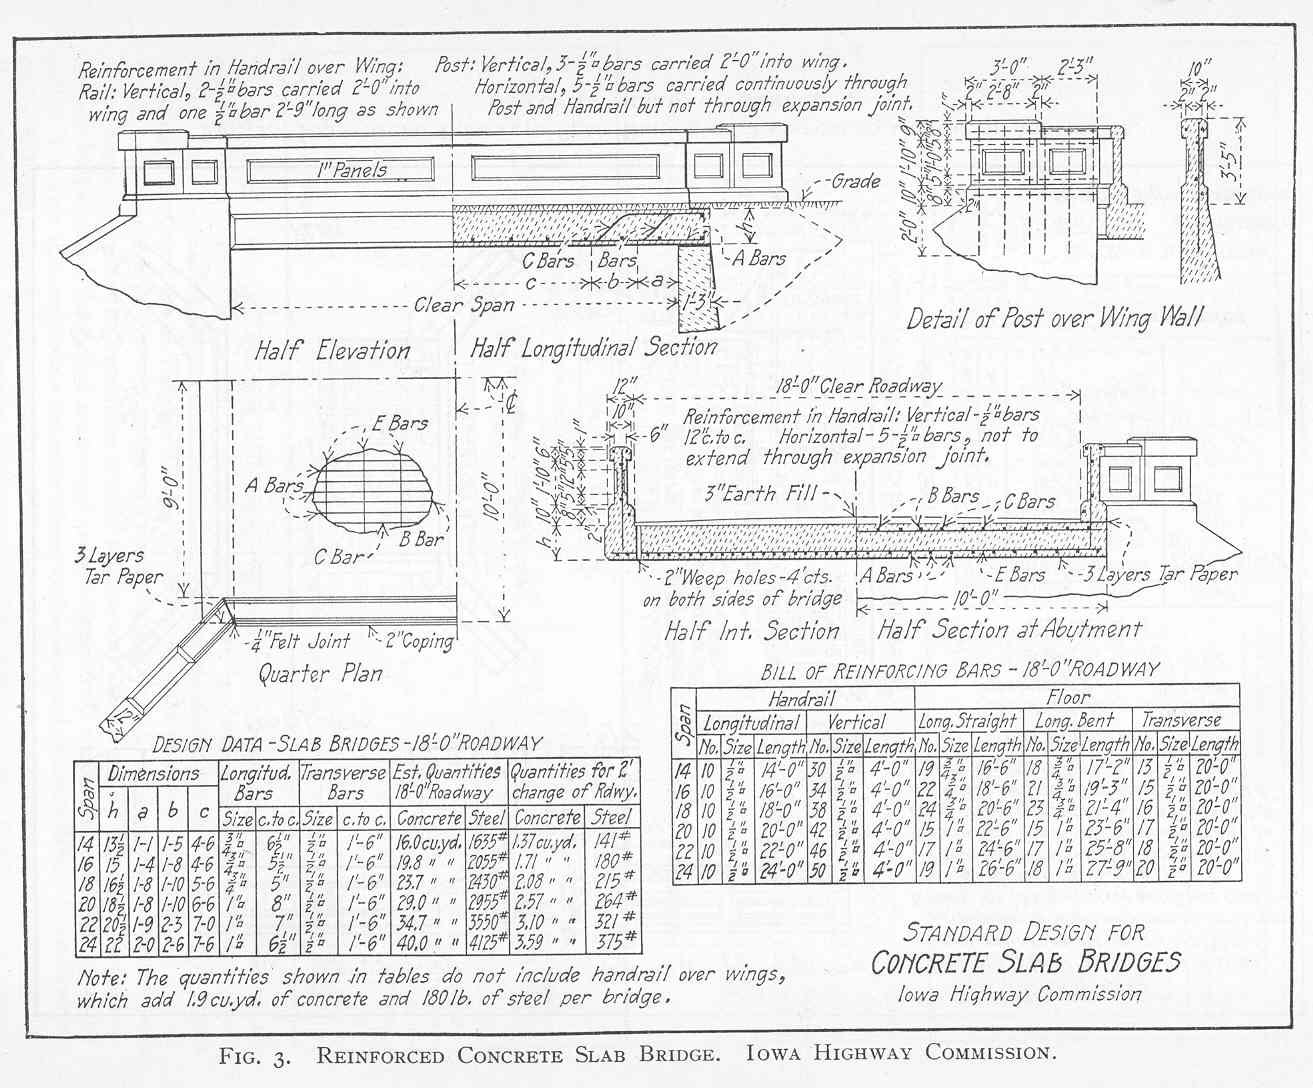 Reinforcement in Handrail over Wing:
Rail: Vertical, 2-½"▫bars carried 2'-0" into
wing and one ½"▫bar 2'-9" long as shown
Post: Vertical, 3-½"▫bars carried 2'-0" into wing.
Horizontal, 5-½"▫bars carried continuously through
Post and Handrail but not through expansion joint.
1" Panels
Grade
h
C Bars
Bars
A Bars
c
b
a
Clear Span
1'-3"
Half Elevation
Half Longitudinal Section
3'-0"
2'-3"
2"
2'-8"
2"
10"
2"
2"
3'-5"
9"
1'-10"
10"
2'-0"
2"
Detail of Post over Wing Wall
E Bars
A Bars
B Bar
C Bar
9'-0"
10'-0"
℄
3 Layers
Tar Paper
¼" Felt Joint
2" Coping
12"
Quarter Plan
12"
10"
6"
18'-0" Clear Roadway
Reinforcement in Handrail: Vertical-½"▫bars
12" c. to c. Horizontal-5-½"▫bars, not to
extend through expansion joint.
1"
6"
1'-10"
10"
h
2"
3" Earth Fill
B Bars
C Bars
2" Weep holes-4' cts.
on both sides of bridge
A Bars
E Bars
3 Layers Tar Paper
10'-0"
Half Int. Section
Half Section at Abutment
BILL OF REINFORCING BARS - 18'-0" ROADWAY
Span
Handrail Floor
Longitudinal Vertical Long. Straight Long. Bent Transverse
No. Size Length No. Size Length No. Size Length No. Size Length No. Size Length
14 10 ½"▫ 14'-0" 30 ½"▫ 4'-0" 19 ¾"▫ 16'-6" 18 ¾"▫ 17'-2" 13 ½"▫ 20'-0"
16 10 ½"▫ 16'-0" 34 ½"▫ 4'-0" 22 ¾"▫ 18'-6" 21 ¾"▫ 19'-3" 15 ½"▫ 20'-0"
18 10 ½"▫ 18'-0" 38 ½"▫ 4'-0" 24 ¾"▫ 20'-6" 23 ¾"▫ 21'-4" 16 ½"▫ 20'-0"
20 10 ½"▫ 20'-0" 42 ½"▫ 4'-0" 15 1"▫ 22'-6" 15 1"▫ 23'-6" 17 ½"▫ 20'-0"
22 10 ½"▫ 22'-0" 46 ½"▫ 4'-0" 17 1"▫ 24'-6" 17 1"▫ 25'-8" 18 ½"▫ 20'-0"
24 10 ½"▫ 24'-0" 50 ½"▫ 4'-0" 19 1"▫ 26'-6" 18 1"▫ 27'-9" 20 ½"▫ 20'-0"
DESIGN DATA - SLAB BRIDGES - 18'-0" ROADWAY
Span
Dimensions Longitud. Bars Transverse Bars Est. Quantities 18'-0" Roadway Quantities for 2' change of Rdwy.
h a b c Size c. to c. Size c. to c. Concrete Steel Concrete Steel
14 13½ 1-1 1-5 4-6 ¾"▫ 6½" ½"▫ 1'-6" 16.0 cu.yd. 1635# 1.37 cu.yd. 141#
16 15 1-4 1-8 4-6 ¾"▫ 5½" ½"▫ 1'-6" 19.8 " " 2055# 1.71 " " 180#
18 16½ 1-8 1-10 5-6 ¾"▫ 5" ½"▫ 1'-6" 23.7 " " 2430# 2.08 " " 215#
20 18½ 1-8 1-10 6-6 1"▫ 8" ½"▫ 1'-6" 29.0 " " 2955# 2.57 " " 264#
22 20½ 1-9 2-3 7-0 1"▫ 7" ½"▫ 1'-6" 34.7 " " 3550# 3.10 " " 321#
24 22 2-0 2-6 7-6 1"▫ 6½" ½"▫ 1'-6" 40.0 " " 4125# 3.59 " " 375#
Note: The quantities shown in tables do not include handrail over wings,
which add 1.9 cu.yd. of concrete and 180 lb. of steel per bridge.
STANDARD DESIGN FOR
CONCRETE SLAB BRIDGES
Iowa Highway Commission
FIG. 3. REINFORCED CONCRETE SLAB BRIDGE. IOWA HIGHWAY COMMISSION.